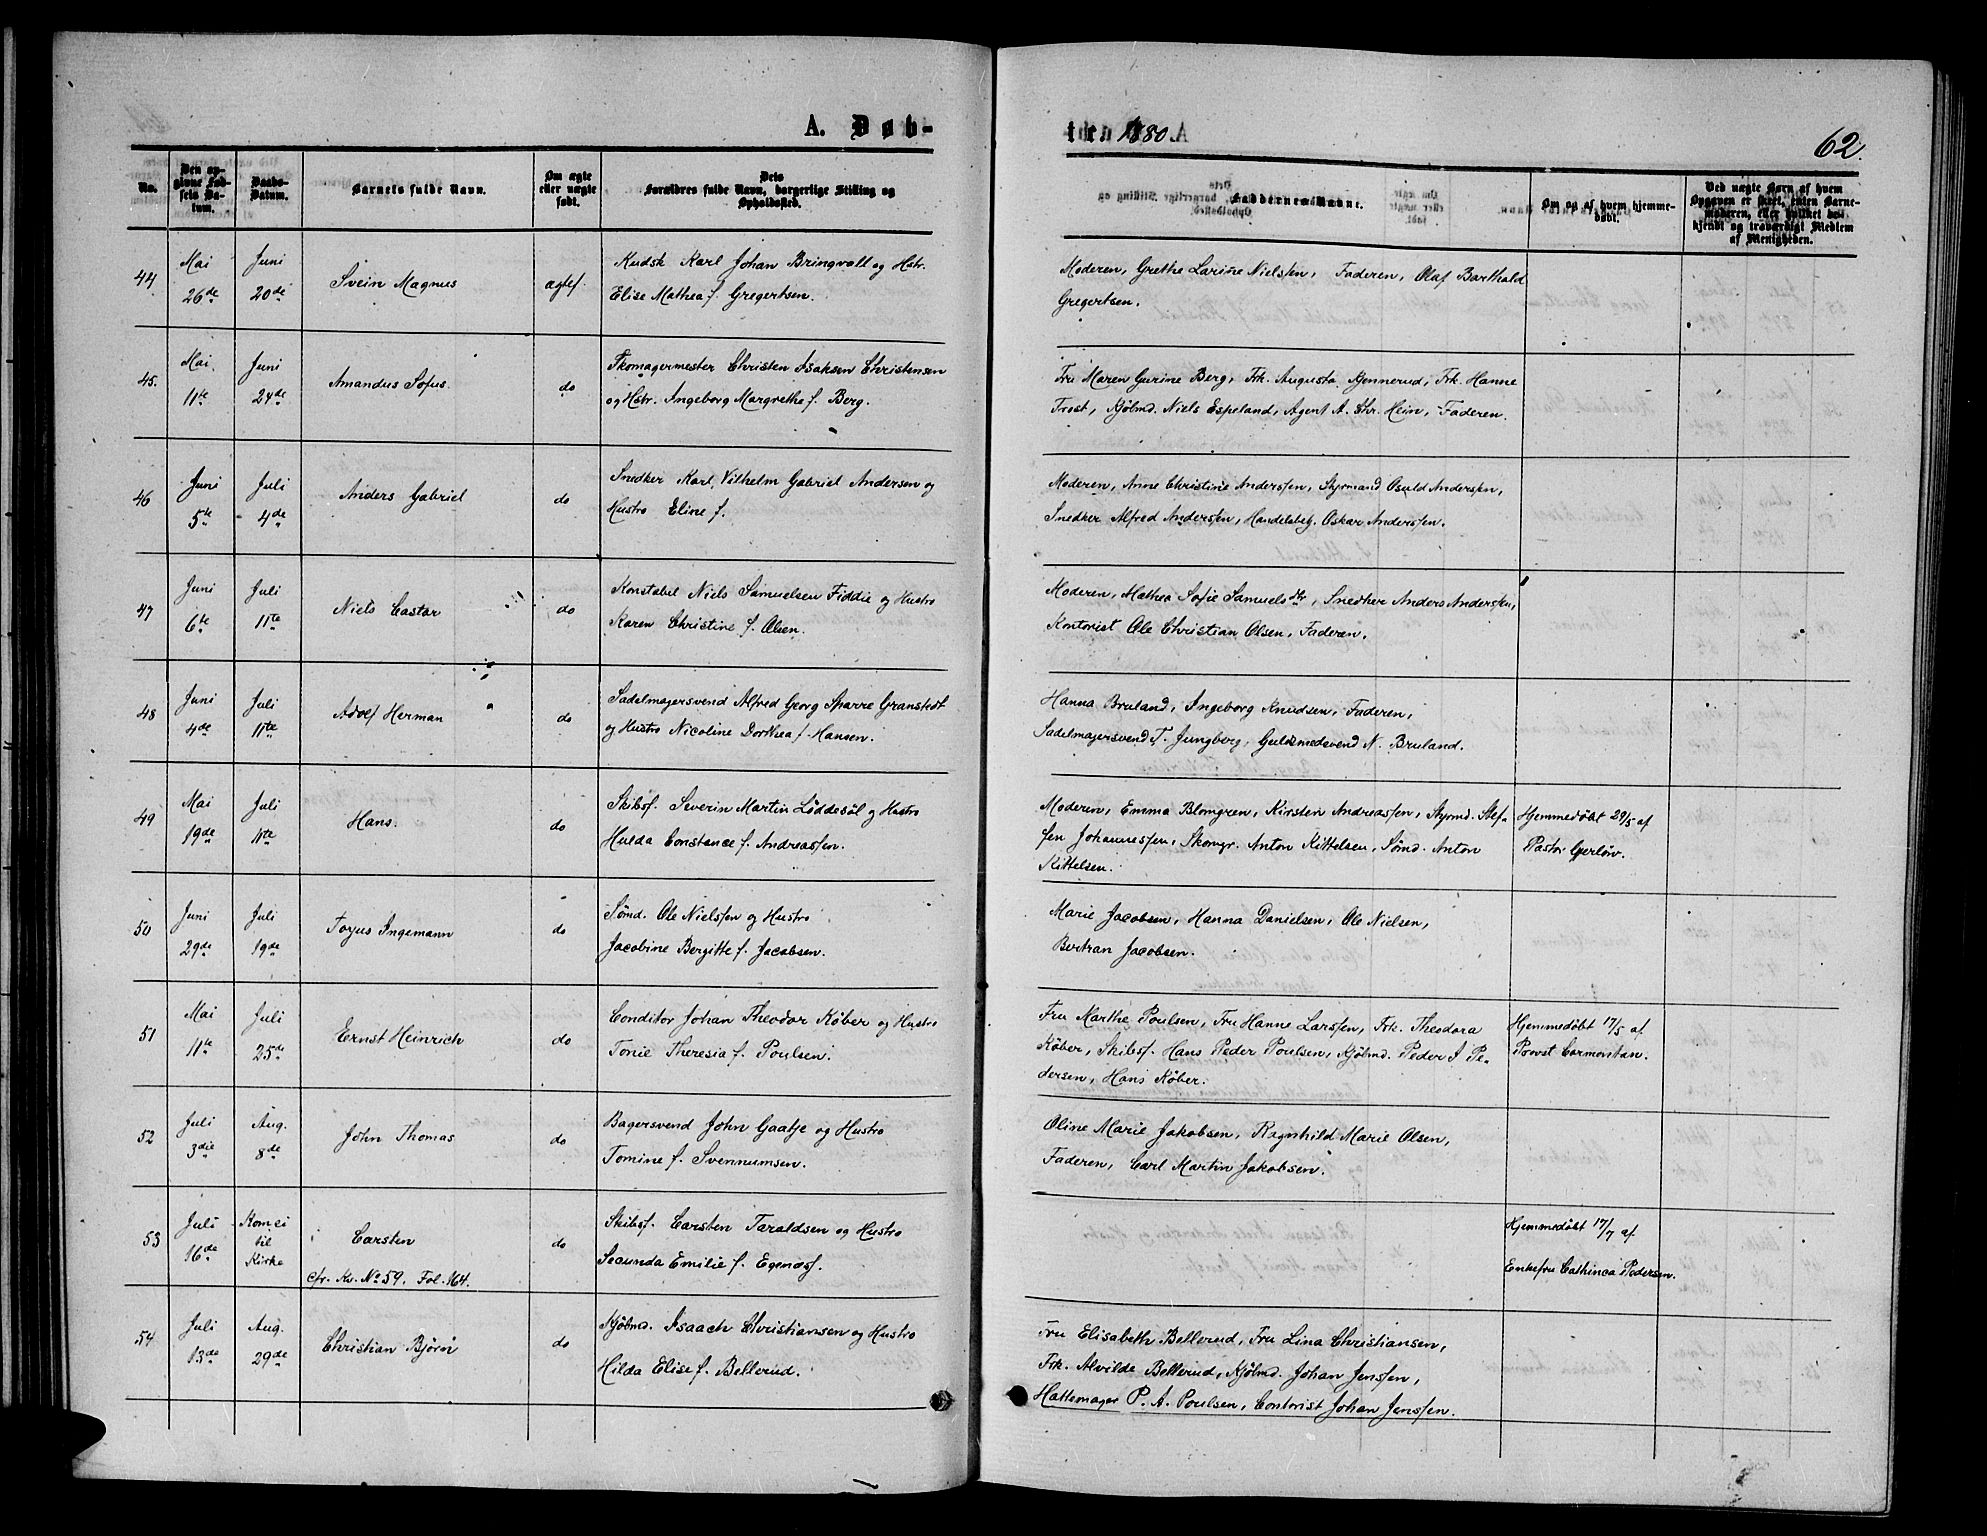 A. Døb-
te. 1880.
62.
No.
Den op-
givne Fød-
sels Da-
tum.
Daabs-
Datum.
Barnets fulde Navn.
Om ægte
eller uægte
født.
Dets
Forældres fulde Navn, borgerlige Stilling og
Opholdssted.
Faddernes Navne.
Om og af hvem hjemme-
døbt.
Ved uægte Børn af hvem
Opgaven er skeet, enten Barne-
moderen, eller hvilket be-
kjendt og troværdigt Medlem
af Menigheden.
44
Mai
26de
Juni
20de
Svein Magnus
ægtef.
Kudsk Karl Johan Bringvoll og Hstr.
Elise Mathea f. Gregertsen.
Moderen, Grethe Larine Nielsen, Faderen, Olaf Barthald
Gregertsen.
45.
Mai.
11te
Juni
24de
Amandus Sofus.
do
Skomagermester Christen Isaksen Christensen
og Hstr. Ingeborg Margrethe f. Berg.
Fru Maren Gurine Berg, Frk. Augusta Kjennerud, Frk. Hanne
Trost, Kjølmd. Niels Espeland, Agent A. Chr. Hein, Faderen.
46
Juni
5te
Juli
4de
Anders Gabriel
do
Snedker Karl Vilhelm Gabriel Andersen og
Hustro Eline f.
Moderen, Anne Christine Andersen, Styrmand Osuld Andersen,
Snedker Alfred Andersen, Handelsbetj. Oskar Andersen.
47
Juni
6te
Juli
11te
Niels Castor
do
Konstabel Niels Samuelsen Fiddie og Hustro
Karen Christine f. Olsen.
Moderen, Mathea Sofie Samuelsdtr, Snedker Anders Andersen,
Kontorist Ole Christian Olsen, Faderen.
48
Juni
4de
Juli
11te
Adolf Herman
do
Sadelmagersvend Alfred Georg Sparre Granstedt
og Hustro Nicoline Dorthea f. Hansen.
Hanna Bruland, Ingeborg Knudsen, Faderen,
Sadelmagersvend T. Jungberg, Guldsmedsvend N. Bruland.
49
Mai
19de
Juli
11te
Hans.
do
Skibsf. Severin Martin Løddesøl og Hustro
Hulda Constance f. Andreassen.
Moderen, Emma Blomgren, Kirsten Andreassen, Styrmd. Stef-
fen Johannessen, Skomgr. Anton Kittelsen, Sømd. Anton
Kittelsen.
Hjemmedøbt 29/5 af
Pastor Gerløv.
50
Juni
29de
Juli
19de
Torjus Ingemann
do
Sømd. Ole Nielsen og Hustro
Jacobine Bergitte f. Jacobsen.
Marie Jacobsen, Hanna Danielsen, Ole Nielsen,
Bertran Jacobsen.
51
Mai
11te
Juli
25de
Ernst Heinrich
do
Conditor Johan Theodor Køber og Hustro
Tonie Theresia f. Poulsen.
Fru Marthe Poulsen, Fru Hanne Larssen, Frk. Theodora
Køber, Skibsf. Hans Peder Poulsen, Kjølmd. Peder I Pe-
dersen, Hans Køber.
Hjemmedøbt 17/5 af
Provst Cormontan.
52
Juli
3die
Aug.
8de
John Thomas
do
Bagersvend John Gaatje og Hustro
Tomine f. Svennumsen.
Oline Marie Jakobsen, Ragnhild Marie Olsen,
Faderen, Carl Martin Jakobsen.
53
Juli
16de
Kom ei
til
Kirke
Carsten
cfr. Kv. No 59. Fol. 164.
do
Skibsf. Carsten Taraldsen og Hustro
Secunda Emilie f. Egenæs.
Hjemmedøbt 17/7 af
Enkefru Cathinca Pedersen.
54
Juli
13de
Aug.
29de
Christian Bjørn
do
Kjøbmd. Isaach Christiansen og Hustro
Hilda Elise f. Bellerud.
Fru Elisabeth Bellerud, Fru Lina Christiansen,
Frk. Alvilde Bellerud, Kjølmd. Johan Jenssen,
Hattemager P. A. Poulsen, Contorist Johan Jenssen.